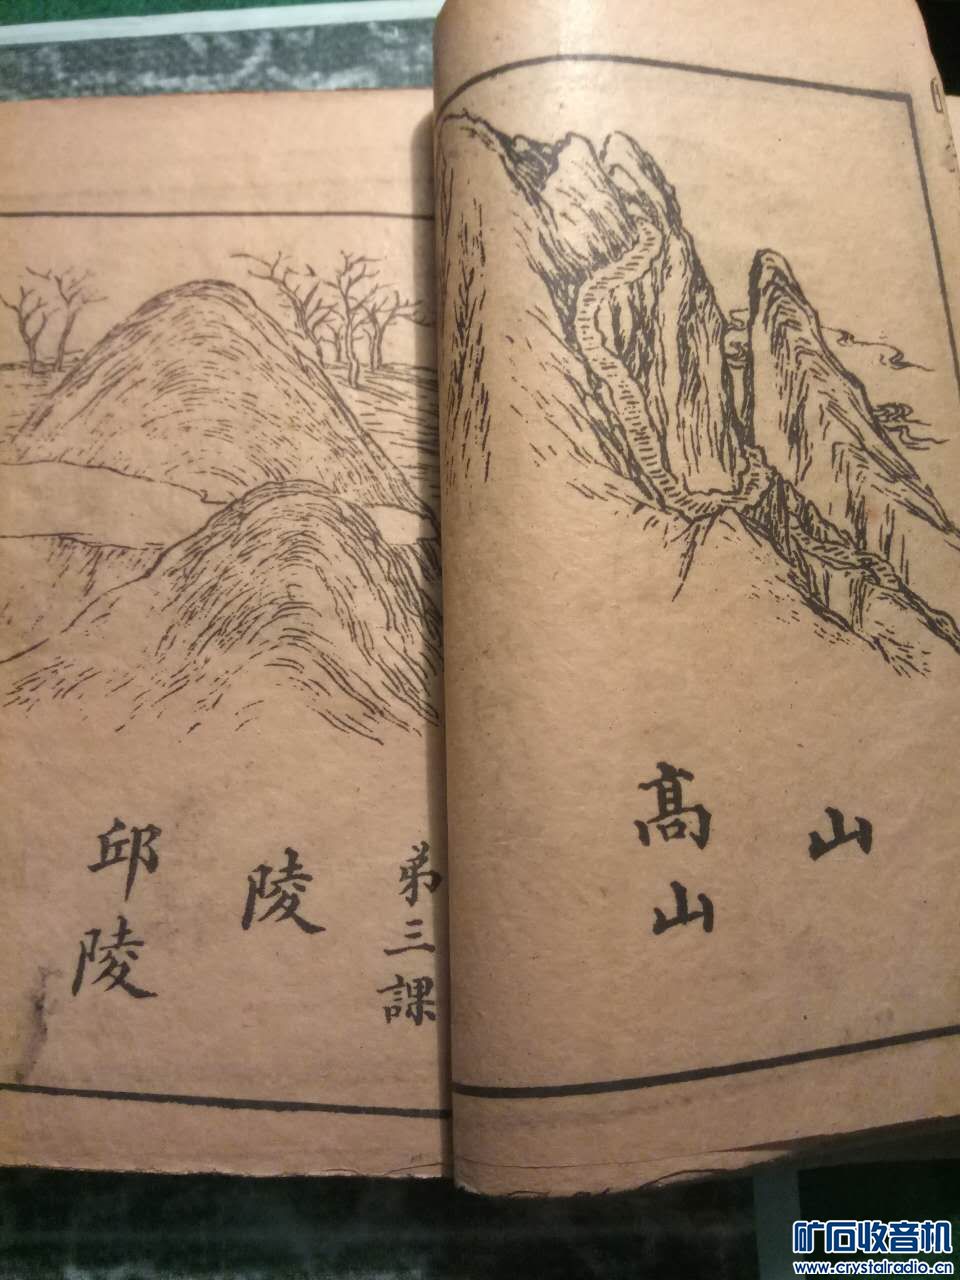 山
高山
弟三課
陵
邱陵
矿石收音机
www.crystalradio.cn